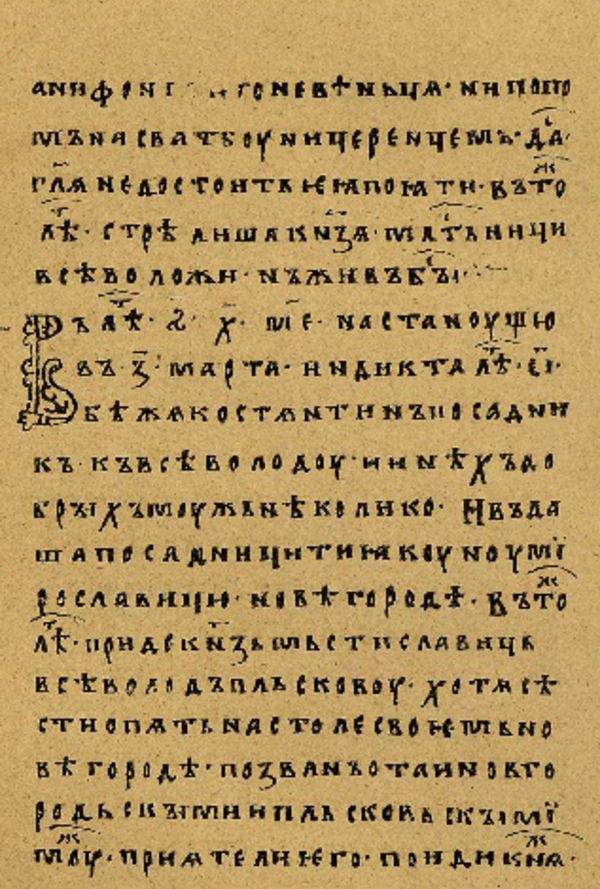 а ни фон его не вѣньця · ни попо
мъ на сватбоу ни церенцемъ · да ·
гл҃я не достоить ѥя поꙗти · въ то
лѣ · стрѣлиша кн҃зя · млⷭтьници
всѣволожи · нъ живъ бы
Въ лѣⷮ · ҂ѕ · х҃ · м҃е · настаноущю
въ · з҃ · марта · индикта лѣⷮ · е҃і ·
бѣжя костянтинъ посадни
къ · къ всѣволодоу · и инѣхъ до
брыхъ моужь нѣколико · И въда
ша посадницити ꙗкоуноу мі
рославицю · новѣгородѣ · Въ тоⷤ
лѣⷮ · приде кн҃зь мьстиславиць
всѣволодъ пльсковоу · хотя сѣ
сти опять на столе своѥмь но
вѣгородѣ · позванъ отаи новго
родьскыми и пльсковьскымі
моуⷤ · приятели ѥго · поиди кн҃яⷤ ·